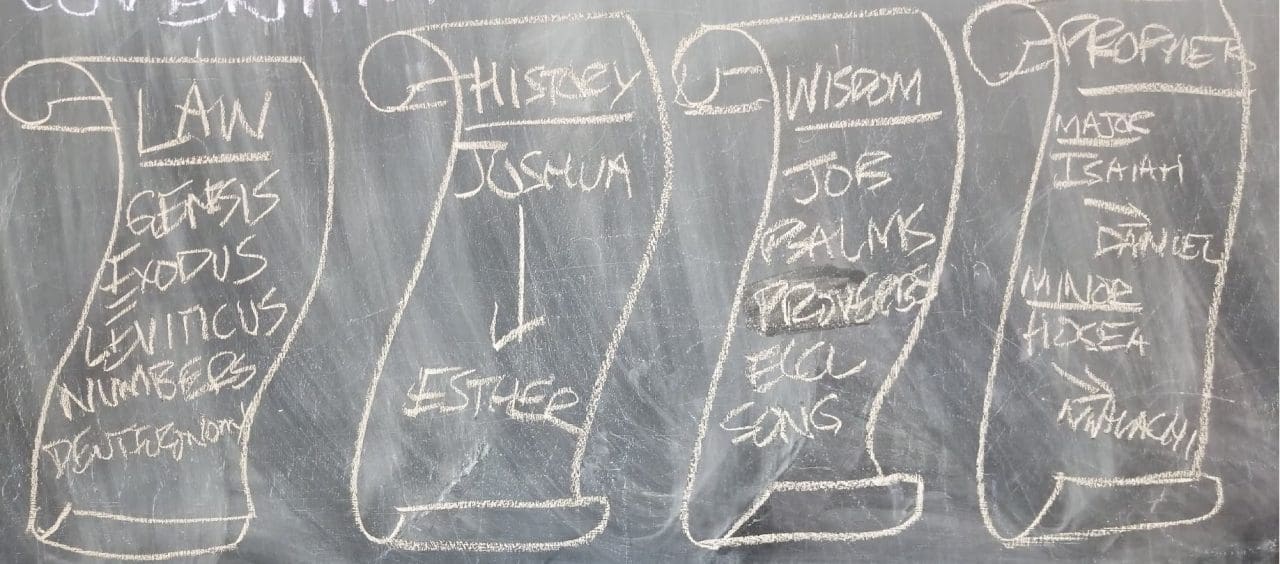 LAW
GENESIS
EXODUS
LEVITICUS
NUMBERS
DEUTERONOMY
HISTORY
JOSHUA
ESTHER
WISDOM
JOB
PSALMS
PROVERBS
ECCL
SONG
PROPHETS
MAJOR
ISAIAH
DANIEL
MINOR
HOSEA
MALACHI